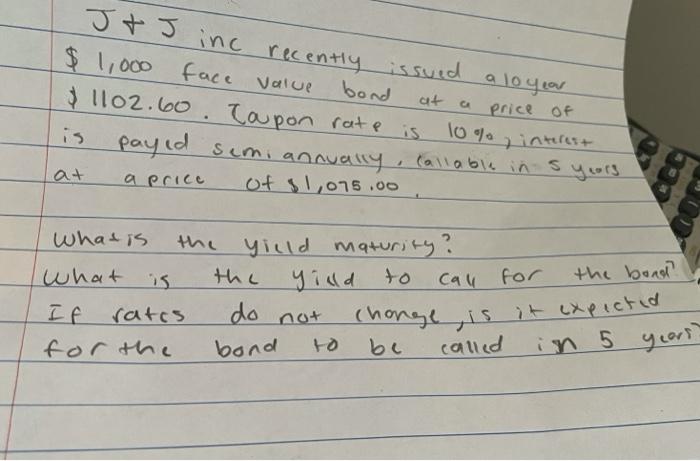 J + J inc recently issued a 10 year
$ 1,000 face value bond at a price of
$ 1102.60. Coupon rate is 10%, interest
is payed semiannually, callable in 5 years
at a price of $1,075.00.
What is the yield maturity?
What is the yield to call for the bond?
If rates do not change, is it expected
for the bond to be called in 5 years?